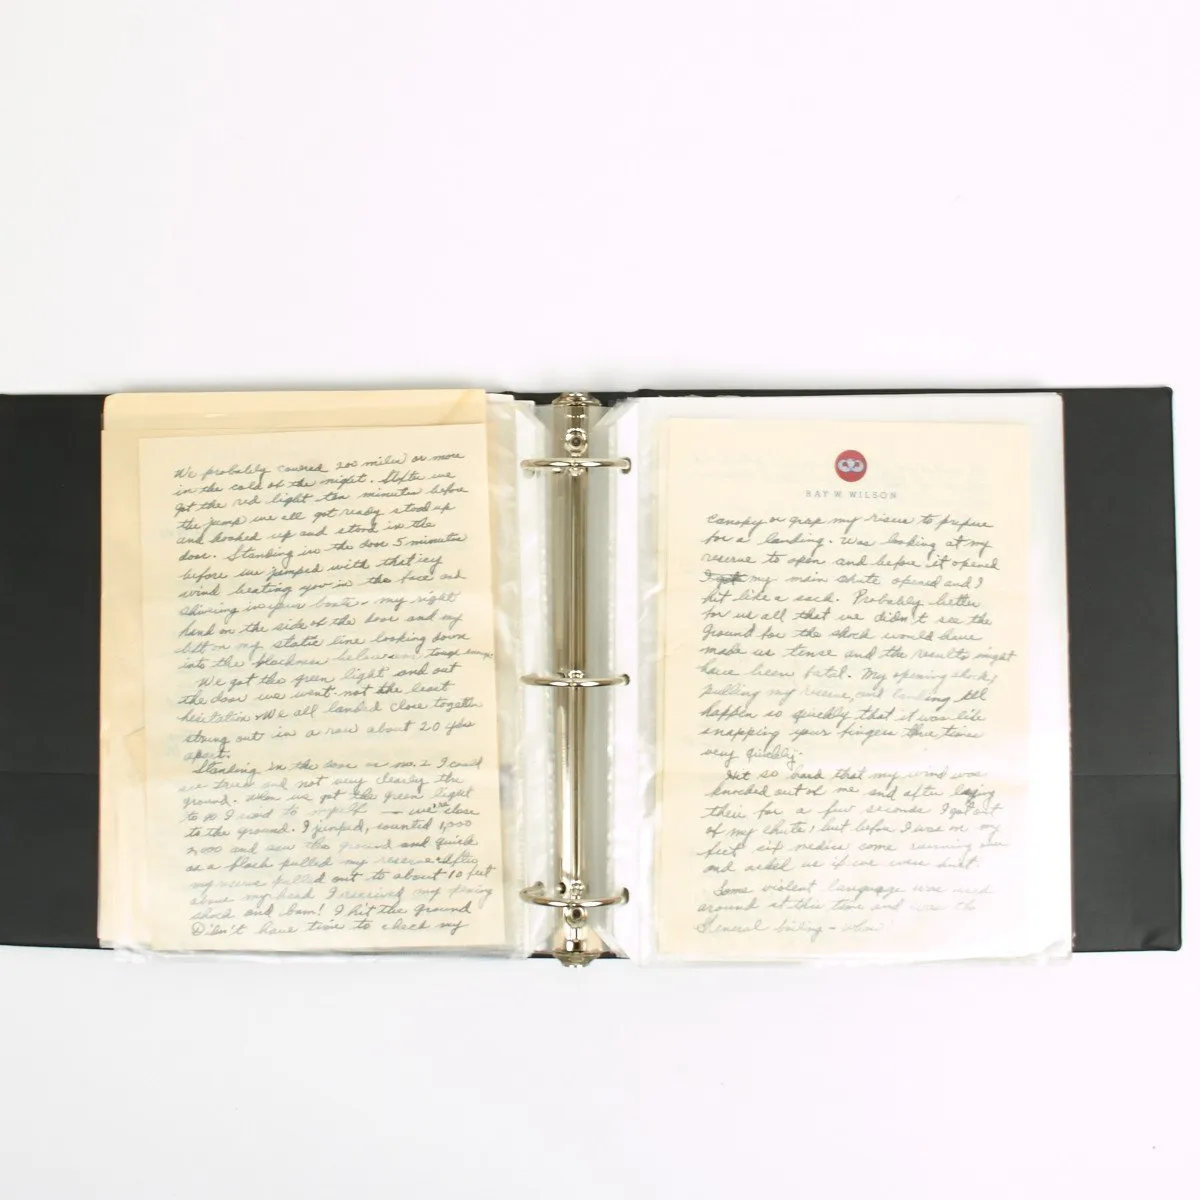 We probably covered 200 miles or more
in the cold of the night. After we
got the red light ten minutes before
the jump we all got ready stood up
and hooked up and stood in the
door. Standing in the door 5 minutes
before we jumped with that icy
wind beating you in the face and
shivering in your boots - my right
hand on the side of the door and my
left on my static line looking down
into the blackness below was tough enough
We got the green light and out
the door we went - not the least
hesitation. We all landed close together
strung out in a row about 20 yds
apart.
Standing in the door as no. 2 I could
see trees and not very clearly the
ground. When we got the green light
to go I said to myself — we're close
to the ground. I jumped, counted 1,000
2,000 and saw the ground and quick
as a flash pulled my reserve. After
my reserve pulled out to about 10 feet
above my head I received my opening
shock and bam! I hit the ground
Didn't have time to check my
RAY W WILSON
canopy or grap my risers to prepare
for a landing. Was looking at my
reserve to open and before it opened
my main chute opened and I
hit like a sack. Probably better
for us all that we didn't see the
ground for the shock would have
made us tense and the results might
have been fatal. My opening shock,
pulling my reserve and landing all
happen so quickly that it was like
snapping your fingers three times
very quickly.
Hit so hard that my wind was
knocked out of me and after laying
there for a few seconds I got out
of my chute; but before I was on my
feet six medics came running over
and asked us if we were hurt.
Some violent language was used
around at this time and was the
General boiling - whew!